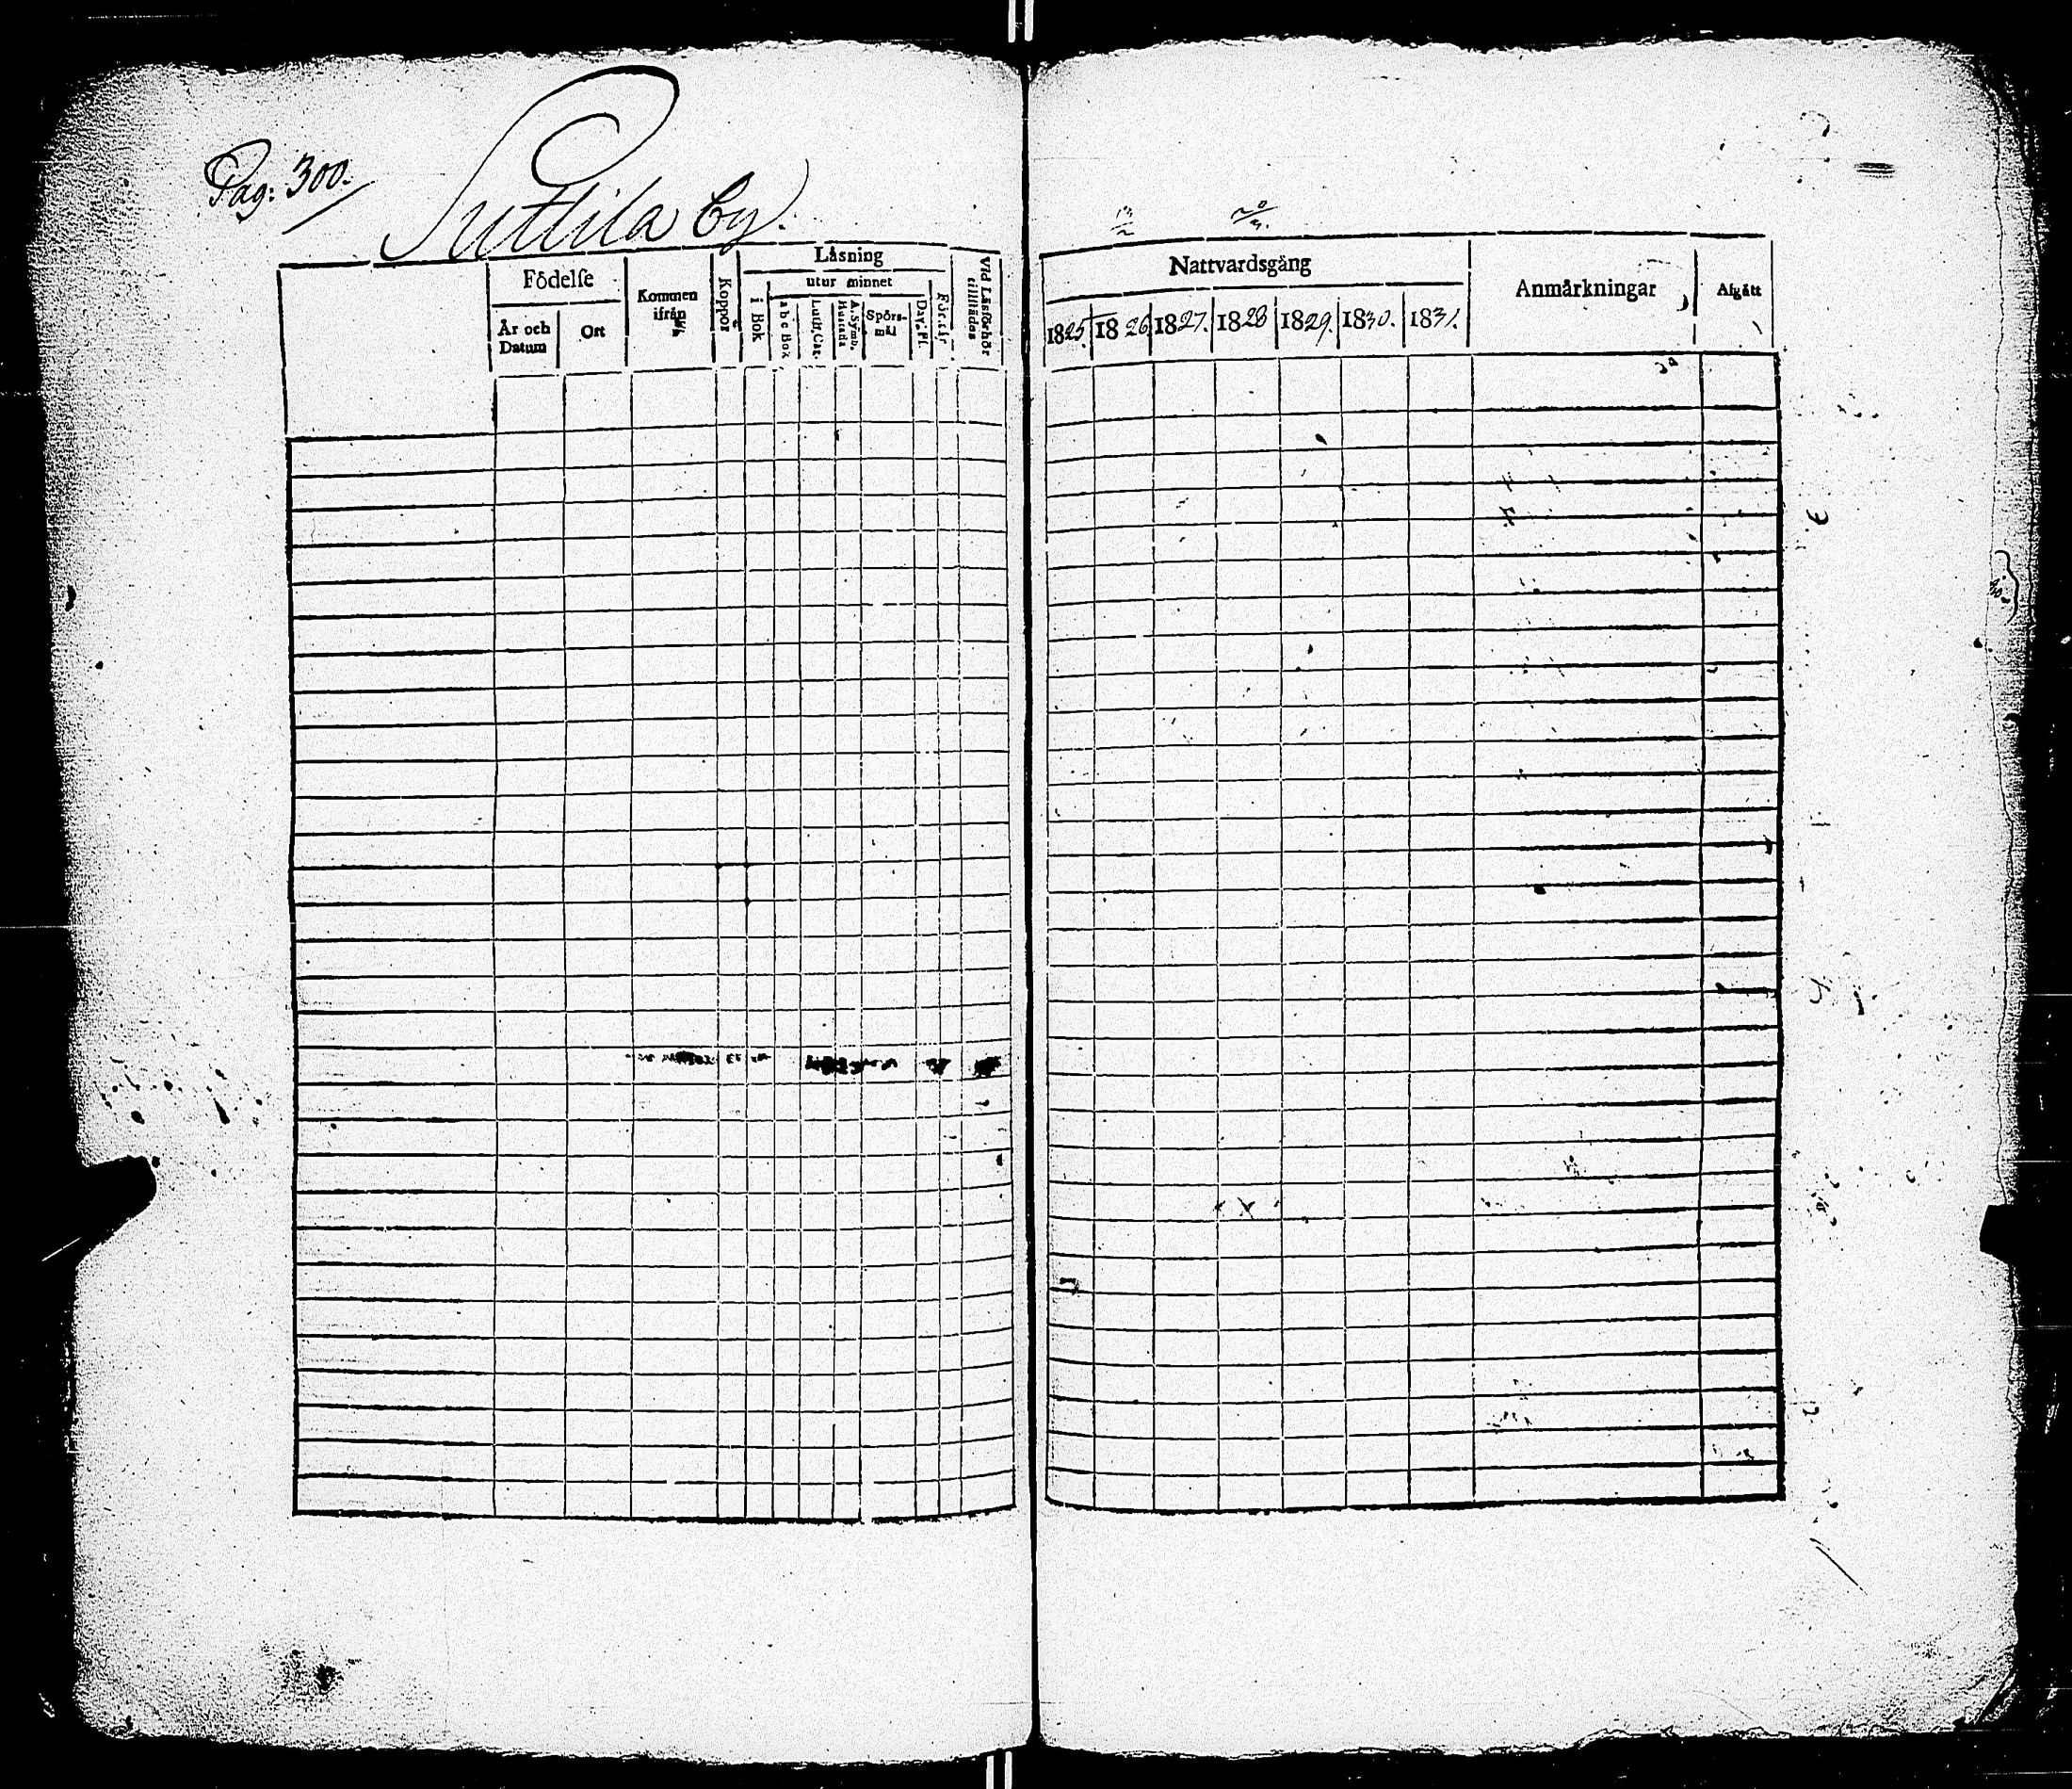 Pag: 300.
Suttila by.
Födelse
År och Datum
Ort
Kommen ifrån
Koppor
Läsning
i Bok
utur minnet
a b c Bok
Luth. Cat.
A. Symb. Hustafla
Spörs-mål
Dav. Ps.
Förstår
Vid Läsförhör tillstädes
Nattvardsgång
1825.
1826
1827.
1828
1829.
1830.
1831.
Anmärkningar
Afgått